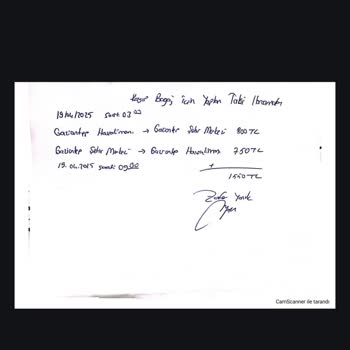 Kayıp Bagaj için Yapılan Taksi
19/04/2025 saat 03:03
Gaziantep Havalimanı → Gaziantep Şehir Merkezi 800 TL
Gaziantep Şehir Merkezi → Gaziantep Havalimanı 750 TL
19.04.2025 saat 09:00
+
1550 TL
CamScanner ile tarandı